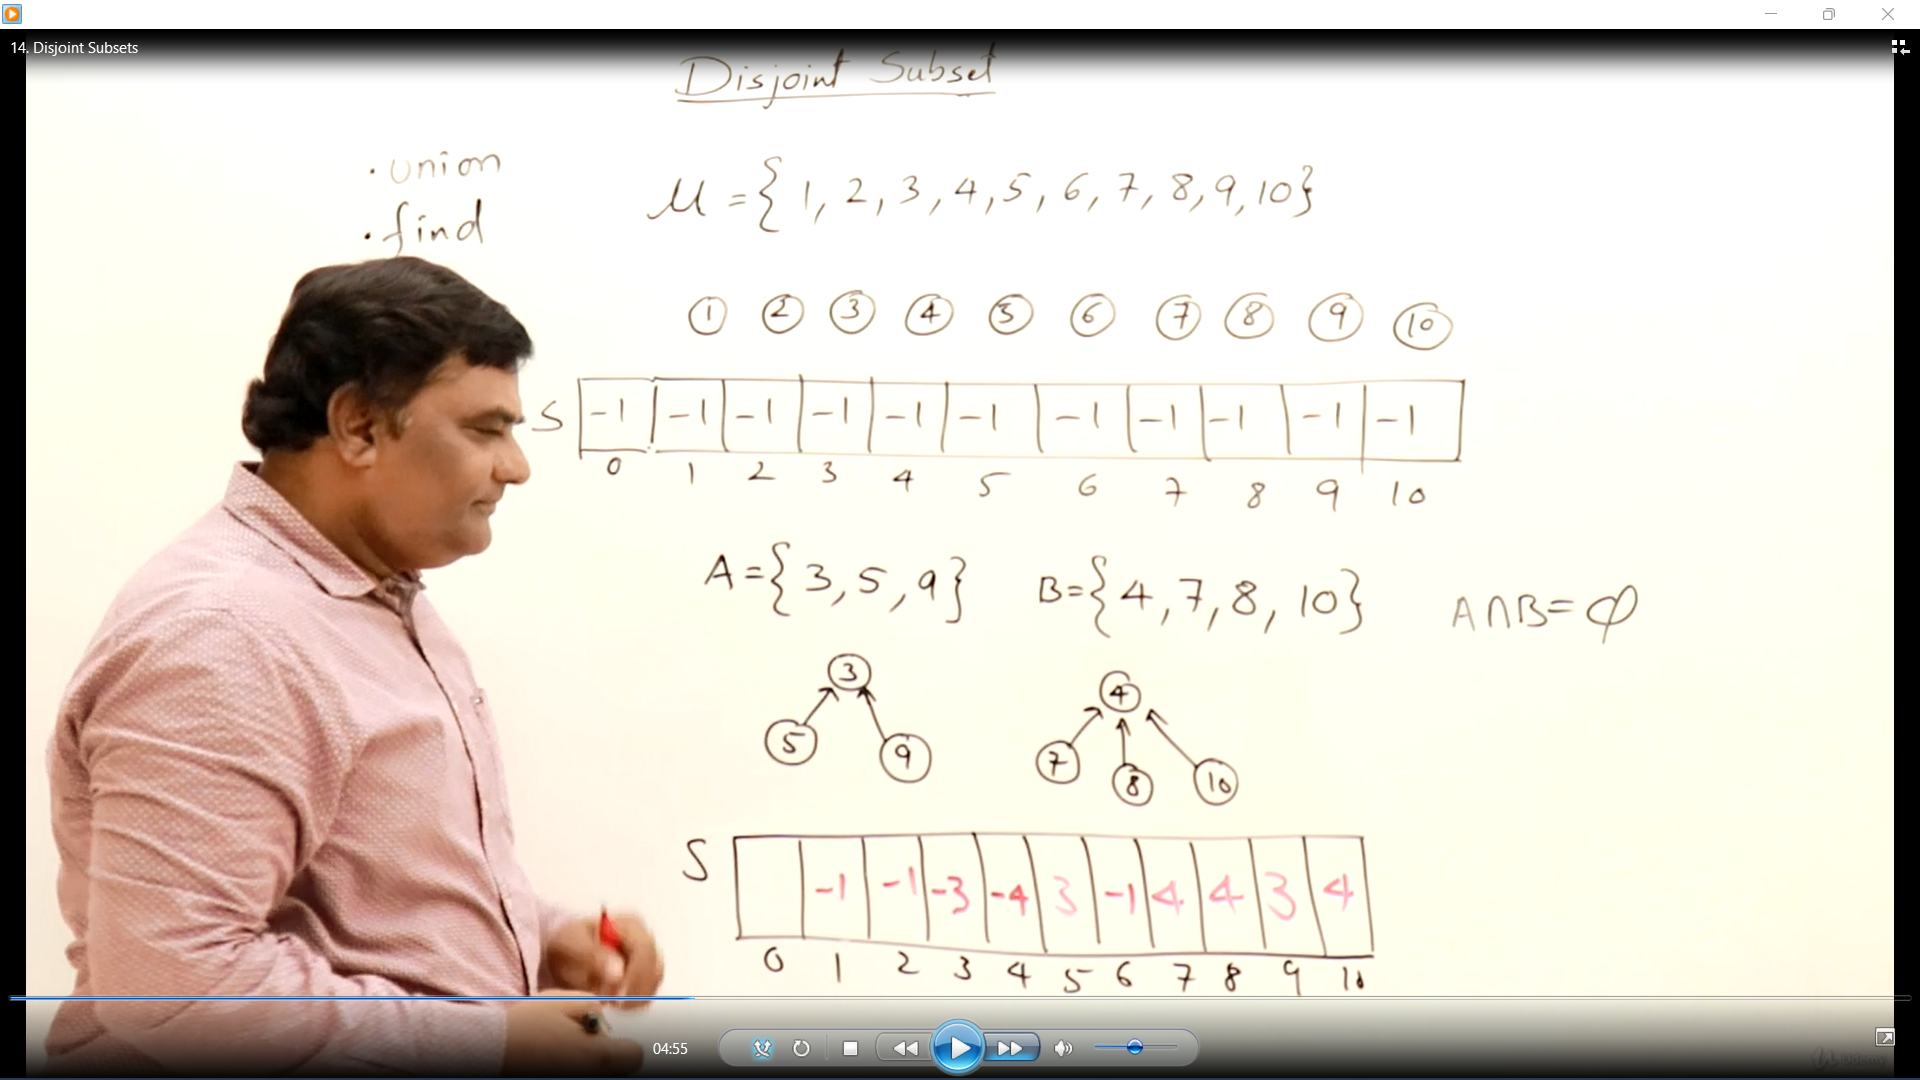 14. Disjoint Subsets
Disjoint Subset
• union
• find
μ = { 1, 2, 3, 4, 5, 6, 7, 8, 9, 10}
1 2 3 4 5 6 7 8 9 10
S -1 -1 -1 -1 -1 -1 -1 -1 -1 -1 -1
0 1 2 3 4 5 6 7 8 9 10
A = {3, 5, 9} B = {4, 7, 8, 10} A∩B = φ
3 4
5 9 7 8 10
S -1 -1 -3 -4 3 -1 4 4 3 4
0 1 2 3 4 5 6 7 8 9 10
04:55
Udemy